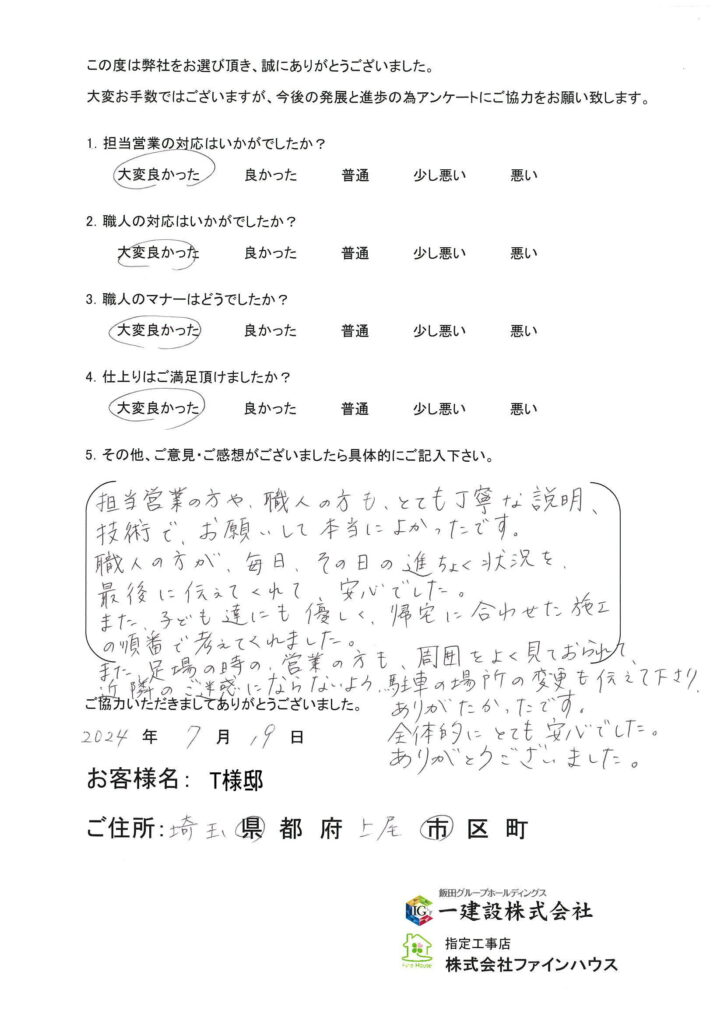 この度は弊社をお選び頂き、誠にありがとうございました。
大変お手数ではございますが、今後の発展と進歩の為アンケートにご協力をお願い致します。
1. 担当営業の対応はいかがでしたか？
大変良かった 良かった 普通 少し悪い 悪い
2. 職人の対応はいかがでしたか？
大変良かった 良かった 普通 少し悪い 悪い
3. 職人のマナーはどうでしたか？
大変良かった 良かった 普通 少し悪い 悪い
4. 仕上りはご満足頂けましたか？
大変良かった 良かった 普通 少し悪い 悪い
5. その他、ご意見・ご感想がございましたら具体的にご記入下さい。
担当営業の方や、職人の方も、とても丁寧な説明、
技術で、お願いして本当によかったです。
職人の方が、毎日、その日の進ちょく状況を、
最後に伝えてくれて、安心でした。
また、子ども達にも優しく、帰宅に合わせた施工
の順番で考えてくれました。
また、足場の時の、営業の方も、周囲をよく見ておられて、
近隣のご迷惑にならないよう、駐車の場所の変更も伝えて下さり、
ありがたかったです。
全体的にとても安心でした。
ありがとうございました。
ご協力いただきましてありがとうございました。
2024 年 7 月 19 日
お客様名： T様邸
ご住所：埼玉 県 都 府 上尾 市 区 町
飯田グループホールディングス
IG
一建設株式会社
指定工事店
Fine House
株式会社ファインハウス